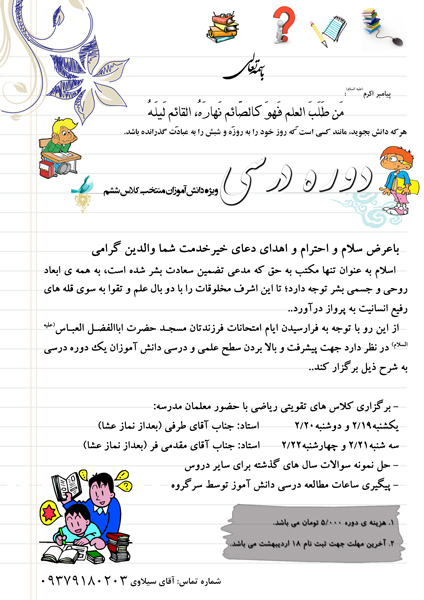 باسمه تعالی
پیامبر اکرم (علیه السلام)
مَن طَلَبَ العلم فَهوَ کالصّائم نَهارَهُ، القائم لَیلَهُ
هر که دانش بجوید، مانند کسی است که روز خود را به روزه و شبش را به عبادت گذرانده باشد.
دوره درسی
ویژه دانش آموزان منتخب کلاس ششم
باعرض سلام و احترام و اهدای دعای خیرخدمت شما والدین گرامی
اسلام به عنوان تنها مکتب به حق که مدعی تضمین سعادت بشر شده است، به همه ی ابعاد
روحی و جسمی بشر توجه دارد؛ تا این اشرف مخلوقات را با دو بال علم و تقوا به سوی قله های
رفیع انسانیت به پرواز درآورد..
از این رو با توجه به فرارسیدن ایام امتحانات فرزندتان مسجد حضرت اباالفضل العباس (علیه
السلام) در نظر دارد جهت پیشرفت و بالا بردن سطح علمی و درسی دانش آموزان یک دوره درسی
به شرح ذیل برگزار کند..
- برگزاری کلاس های تقویتی ریاضی با حضور معلمان مدرسه:
یکشنبه ۲/۱۹ و دوشنبه ۲/۲۰ استاد: جناب آقای طرفی (بعداز نماز عشا)
سه شنبه ۲/۲۱ و چهارشنبه ۲/۲۲ استاد: جناب آقای مقدمی فر (بعداز نماز عشا)
- حل نمونه سوالات سال های گذشته برای سایر دروس
- پیگیری ساعات مطالعه درسی دانش آموز توسط سرگروه
۱. هزینه ی دوره ۵/۰۰۰ تومان می باشد.
۲. آخرین مهلت جهت ثبت نام ۱۸ اردیبهشت می باشد.
شماره تماس: آقای سیلاوی ۰۹۳۷۹۱۸۰۲۰۳